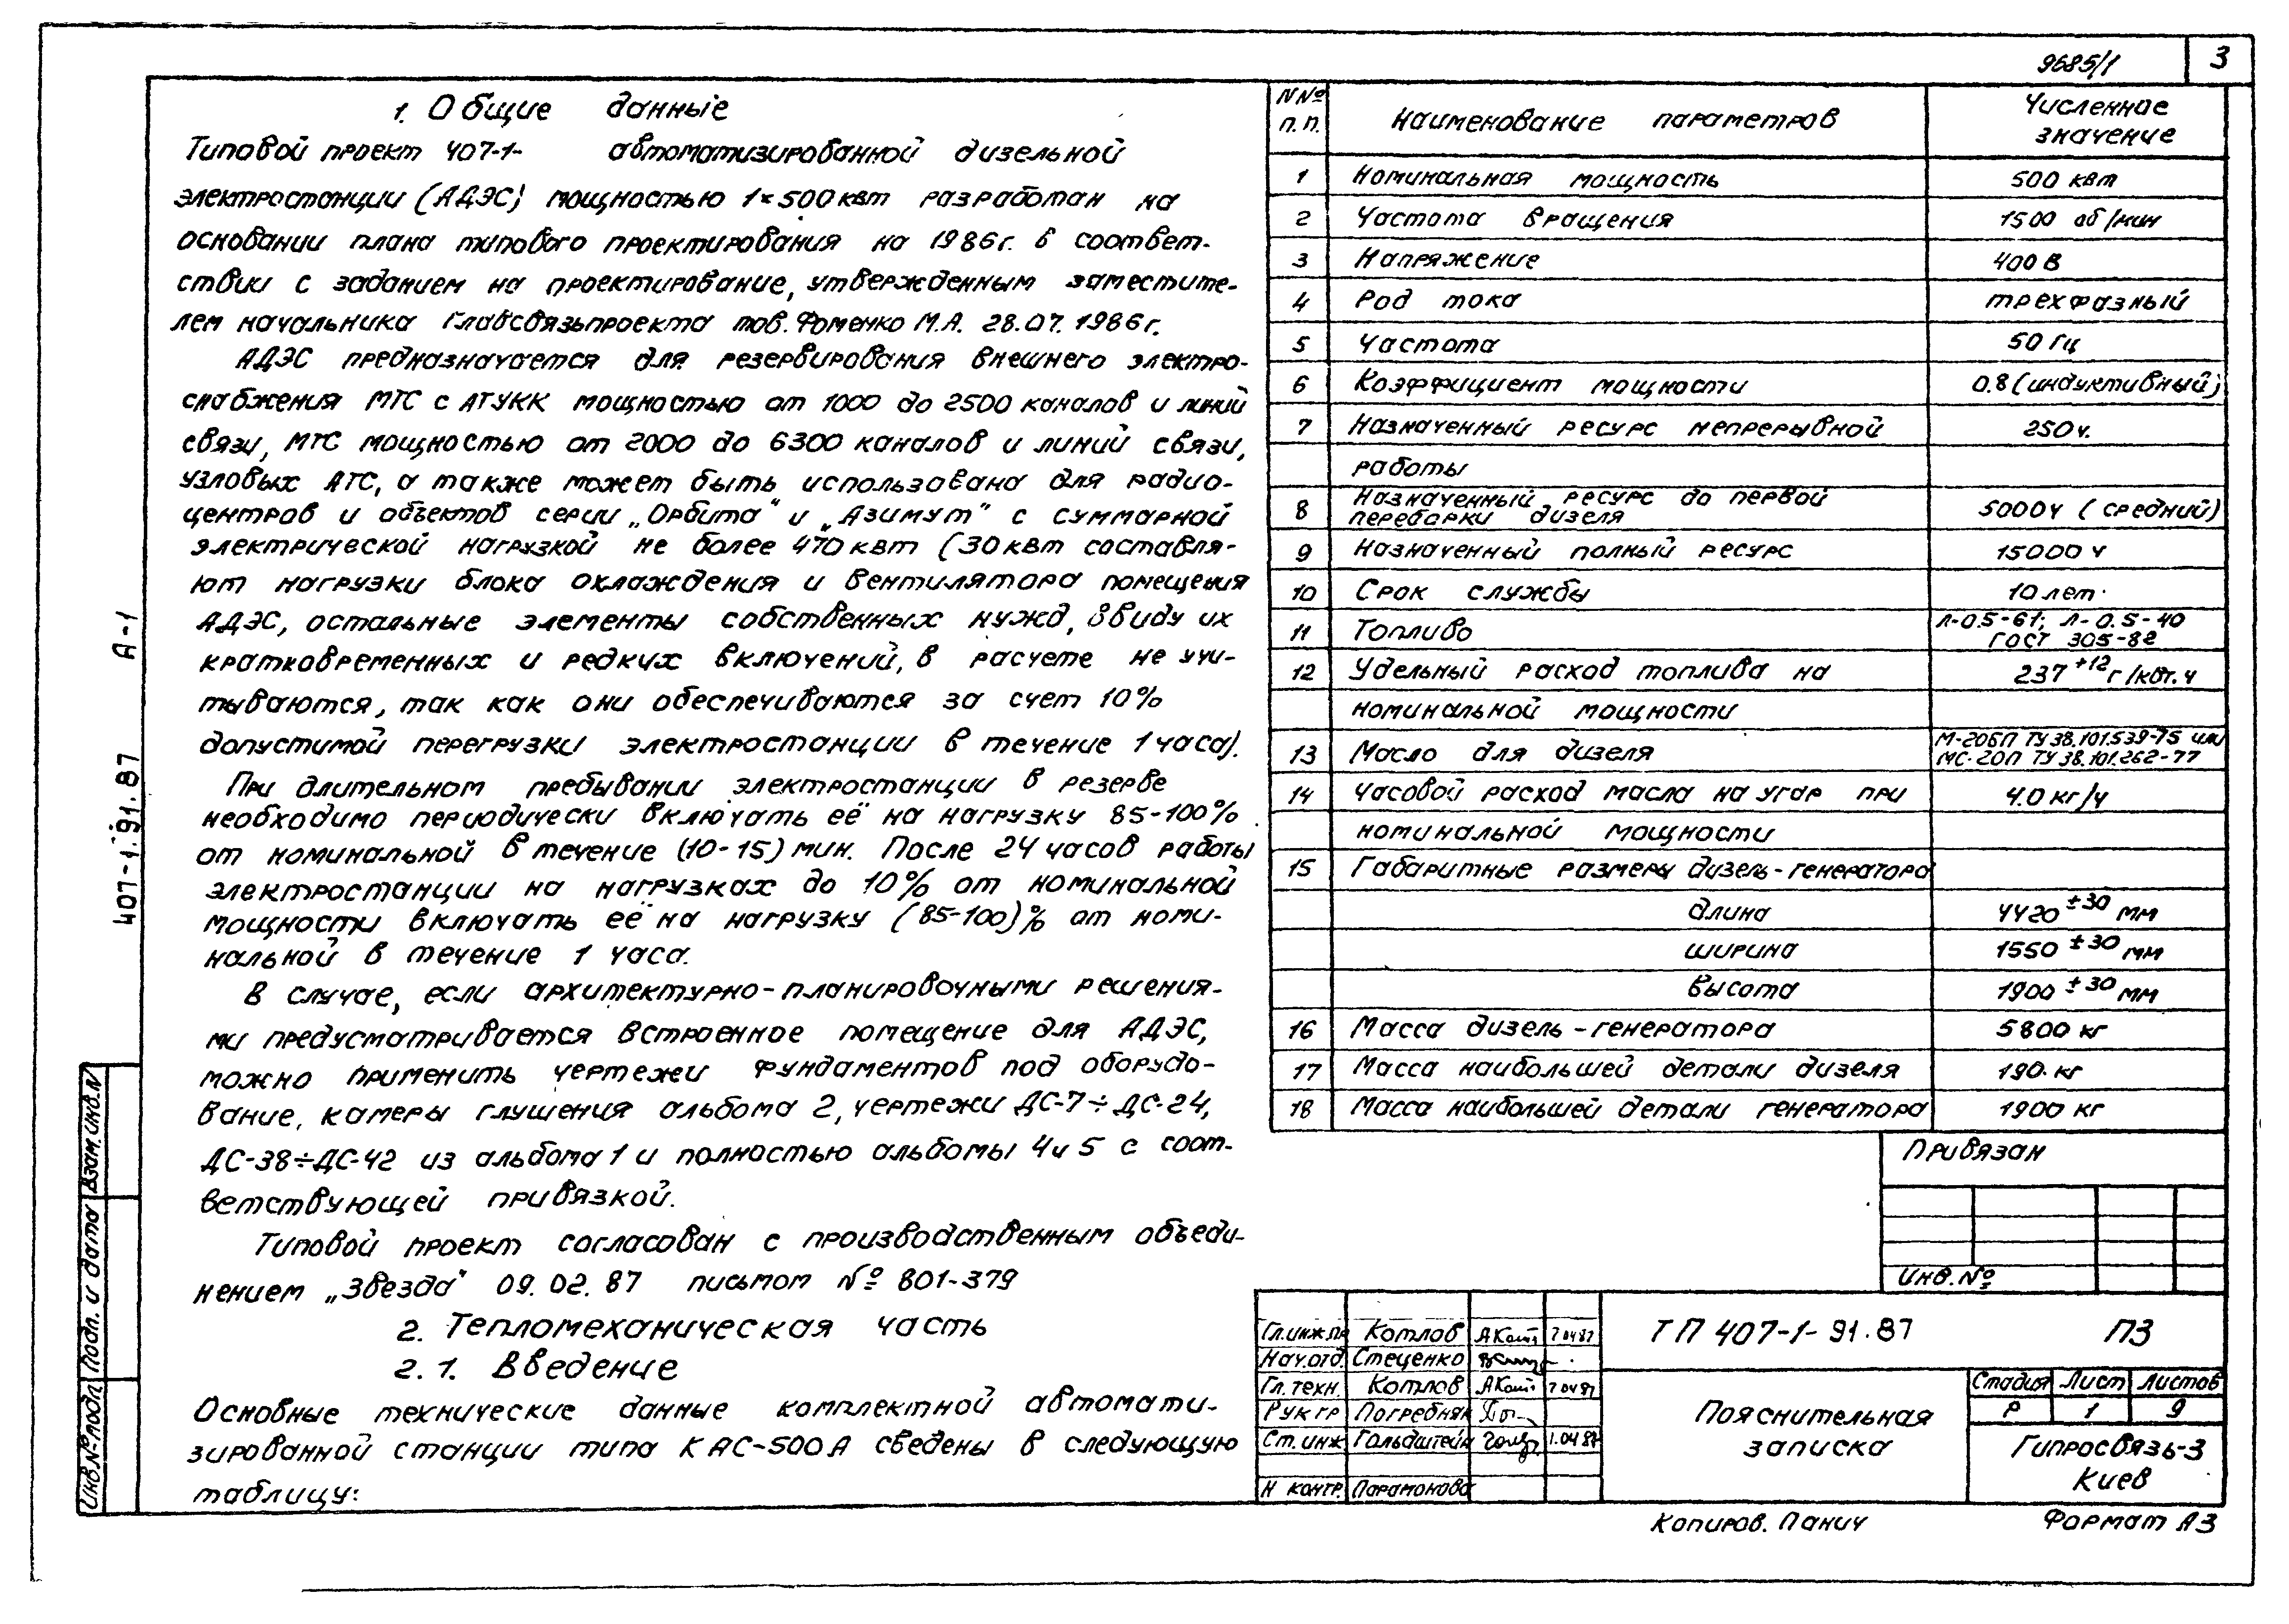 9685/1
3
1. Общие данные
Типовой проект 407-1- автоматизированной дизельной
электростанции (АДЭС) мощностью 1×500 квт разработан на
основании плана типового проектирования на 1986г. в соответ-
ствии с заданием на проектирование, утвержденным заместите-
лем начальника Главсвязьпроекта тов. Фоменко М.А. 28.07.1986г.
АДЭС предназначается для резервирования внешнего электро-
снабжения МТС с АТУКК мощностью от 1000 до 2500 каналов и линий
связи, МТС мощностью от 2000 до 6300 каналов и линий связи,
узловых АТС, а также может быть использована для радио-
центров и объектов серии „Орбита" и „Азимут" с суммарной
электрической нагрузкой не более 470 квт (30 квт составля-
ют нагрузки блока охлаждения и вентилятора помещения
АДЭС, остальные элементы собственных нужд, ввиду их
кратковременных и редких включений, в расчете не учи-
тываются, так как они обеспечиваются за счет 10%
допустимой перегрузки электростанции в течение 1 часа).
При длительном пребывании электростанции в резерве
необходимо периодически включать её на нагрузку 85-100%
от номинальной в течение (10-15) мин. После 24 часов работы
электростанции на нагрузках до 10% от номинальной
мощности включать её на нагрузку (85-100)% от номи-
нальной в течение 1 часа.
В случае, если архитектурно-планировочными решения-
ми предусматривается встроенное помещение для АДЭС,
можно применить чертежи фундаментов под оборудо-
вание, камеры глушения альбома 2, чертежи ДС-7÷ДС-24,
ДС-38÷ДС-42 из альбома 1 и полностью альбомы 4 и 5 с соот-
ветствующей привязкой.
Типовой проект согласован с производственным объеди-
нением „Звезда" 09.02.87 письмом № 801-379
2. Тепломеханическая часть
2.1. Введение
Основные технические данные комплектной автомати-
зированной станции типа КАС-500А сведены в следующую
таблицу:
N№ п.п. Наименование параметров Численное значение
1 Номинальная мощность 500 квт
2 Частота вращения 1500 об/мин
3 Напряжение 400 В
4 Род тока трехфазный
5 Частота 50 Гц
6 Коэффициент мощности 0.8 (индуктивный)
7 Назначенный ресурс непрерывной 250 ч.
работы
8 Назначенный ресурс до первой
переборки дизеля 5000ч (средний)
9 Назначенный полный ресурс 15000 ч
10 Срок службы 10 лет.
11 Топливо Л-0.5-61; Л-0.5-40
ГОСТ 305-82
12 Удельный расход топлива на 237 +12 г/квт.ч
номинальной мощности
13 Масло для дизеля М-20БП ТУ 38.101.539-75 или
МС-20П ТУ 38.101.262-77
14 Часовой расход масла на угар при 4.0 кг/ч
номинальной мощности
15 Габаритные размеры дизель-генератора
длина 4420 ±30 мм
ширина 1550 ±30 мм
высота 1900 ±30 мм
16 Масса дизель-генератора 5800 кг
17 Масса наибольшей детали дизеля 190. кг
18 Масса наибольшей детали генератора 1900 кг
Привязан
Инв. №
Гл.инж.пр Котлов 7.04.87
Нач.отд. Стеценко
Гл. техн. Котлов 7.04.87
Рук гр Погребняк
Ст. инж Гольдштейн 1.04.87
Н контр. Парамонова
ТП 407-1-91.87 ПЗ
Пояснительная
записка
Стадия Лист Листов
Р 1 9
Гипросвязь-3
Киев
Копиров. Панич
Формат А3
407-1.91.87 А-1
Инв.№подл Подп. и дата Взам.инв.N